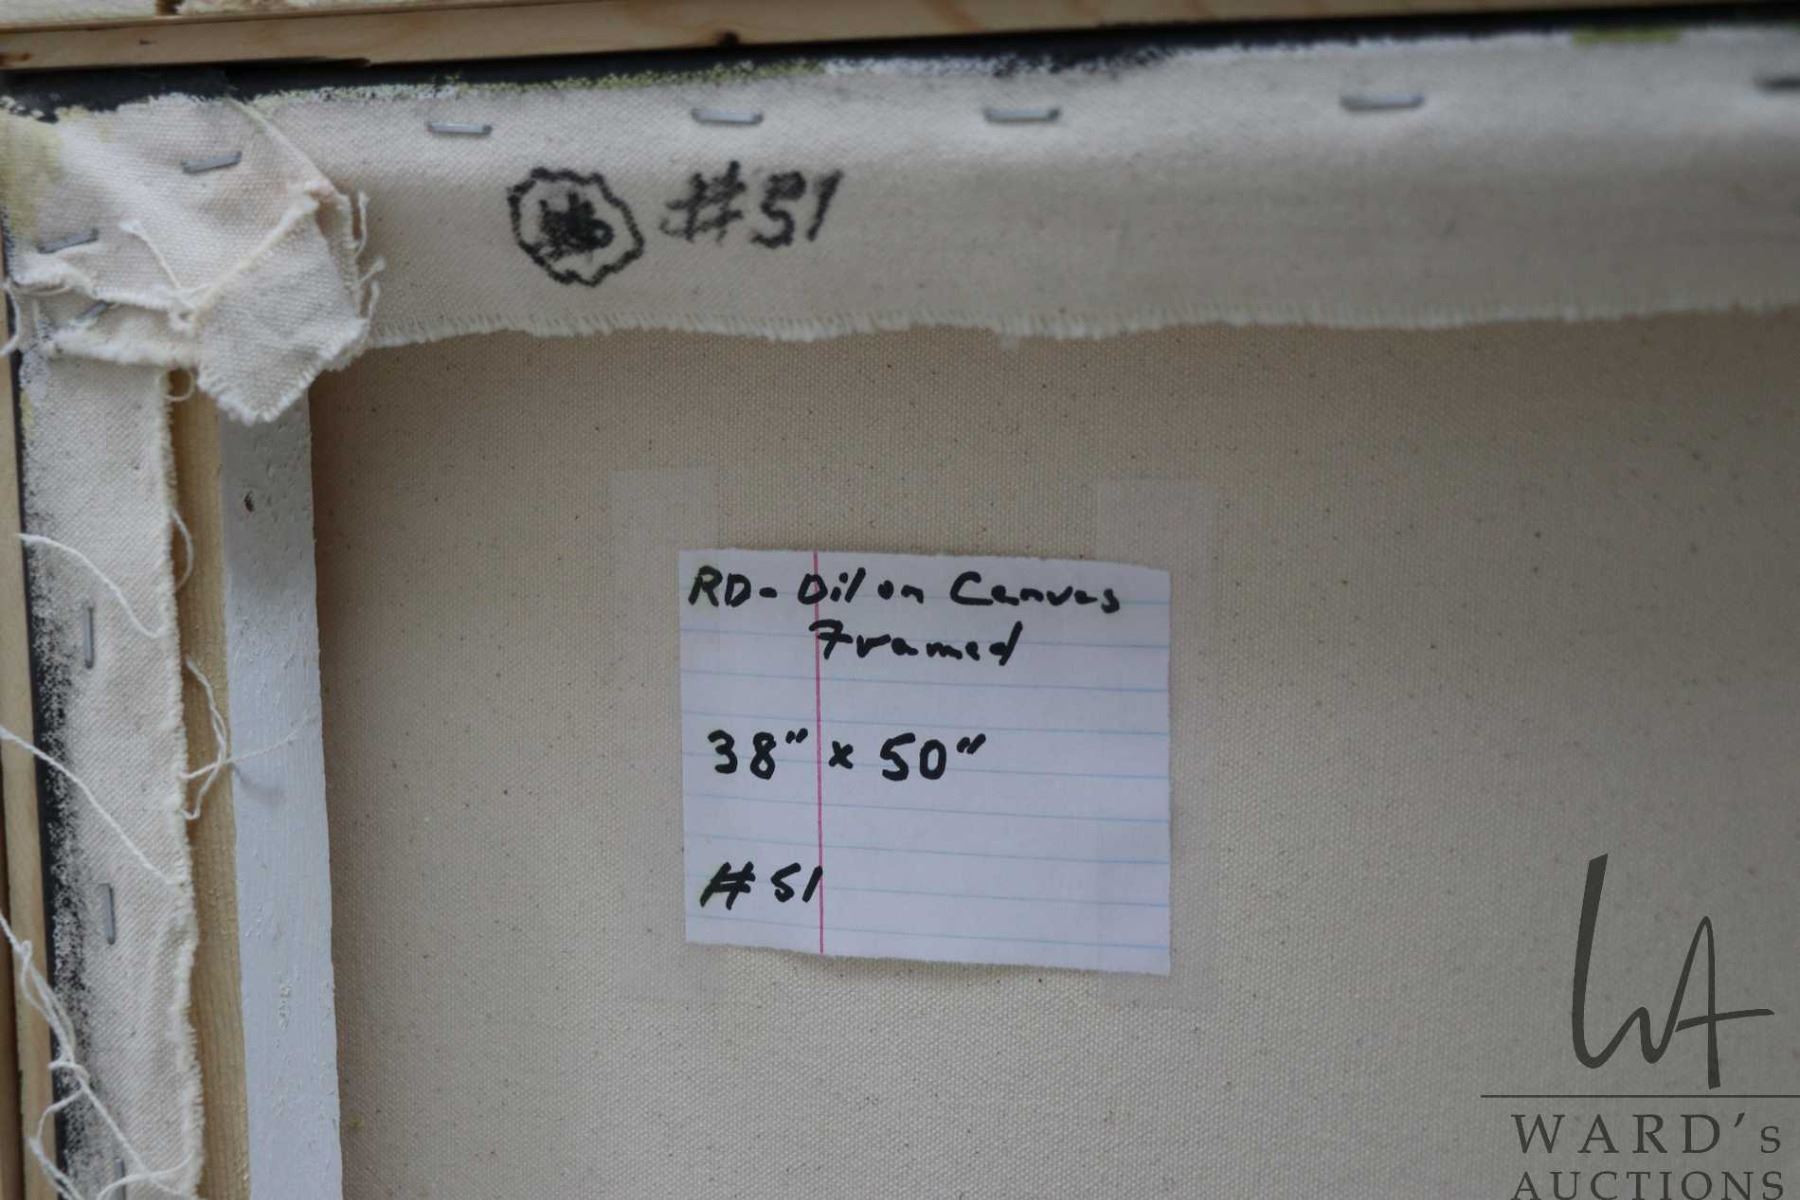 #51
RD- Oil on Canvas
Framed
38" x 50"
#51
WA
WARD's
AUCTIONS